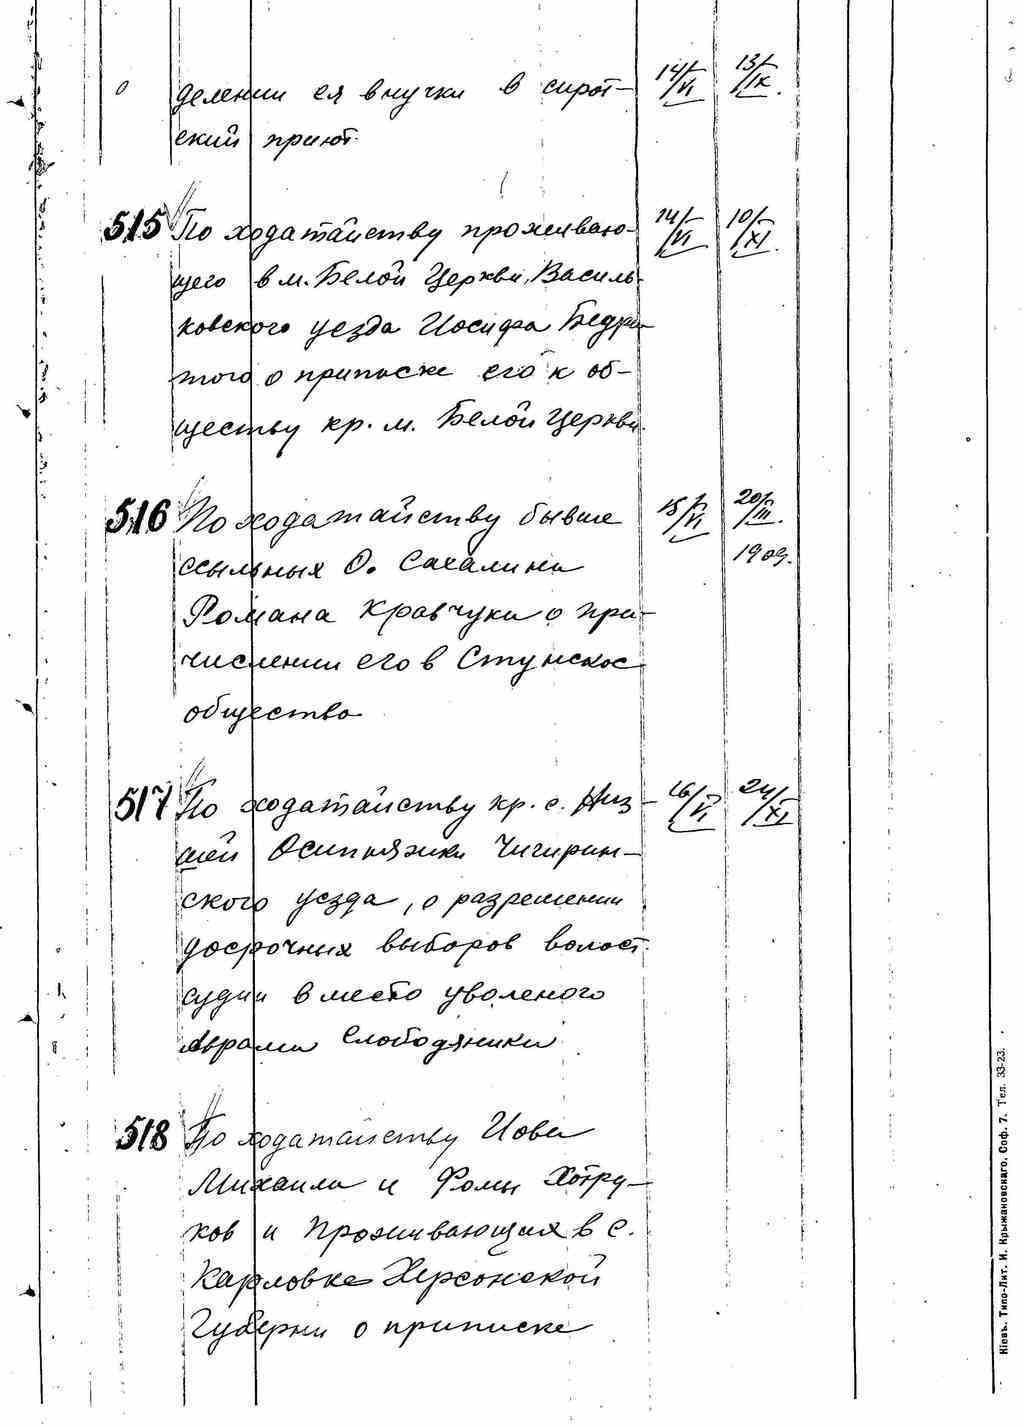 делении ея внучки в сирот- 14/VI 13/IX.
ский приют
515 По ходатайству проживаю- 14/VI 10/XI.
щего в м. Белой Церкви, Василь-
ковского уезда Иосифа
того о приписке его к об-
ществу кр. м. Белой Церкви.
516 По ходатайству бывше 15/VI 20/III.
ссыльных О. Сахалина 1909.
Романа Кравчука о при-
числении его в
общество
517 По ходатайству кр. с. 16/VI 24/XI
шей Осипляжки Чигирин-
ского уезда, о разрешении
досрочных выборов волост.
судьи вместо уволеного
Аврама Слободяника
518 По ходатайству Иова
Михаила и Фомы Хотру-
ков и Проживающих в с.
Карловке Херсонской
Губерни о приписке
Кіевъ. Типо-Лит. И. Крыжановскаго. Соф. 7. Тел. 33-23.